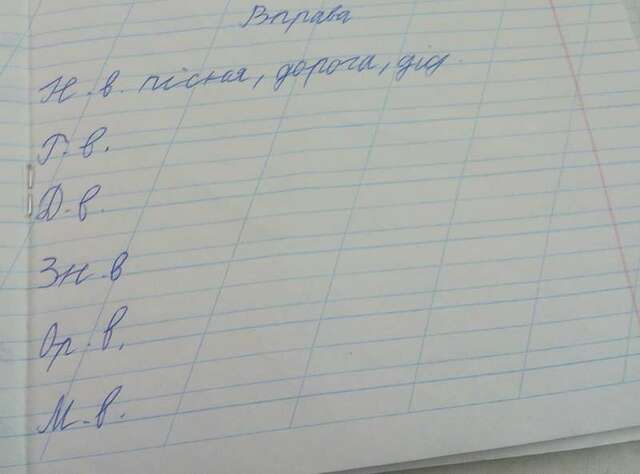 Вправа
Н.в. пісня, дорога, дід.
Р.в.
Д.в.
Зн.в
Ор.в.
М.в.